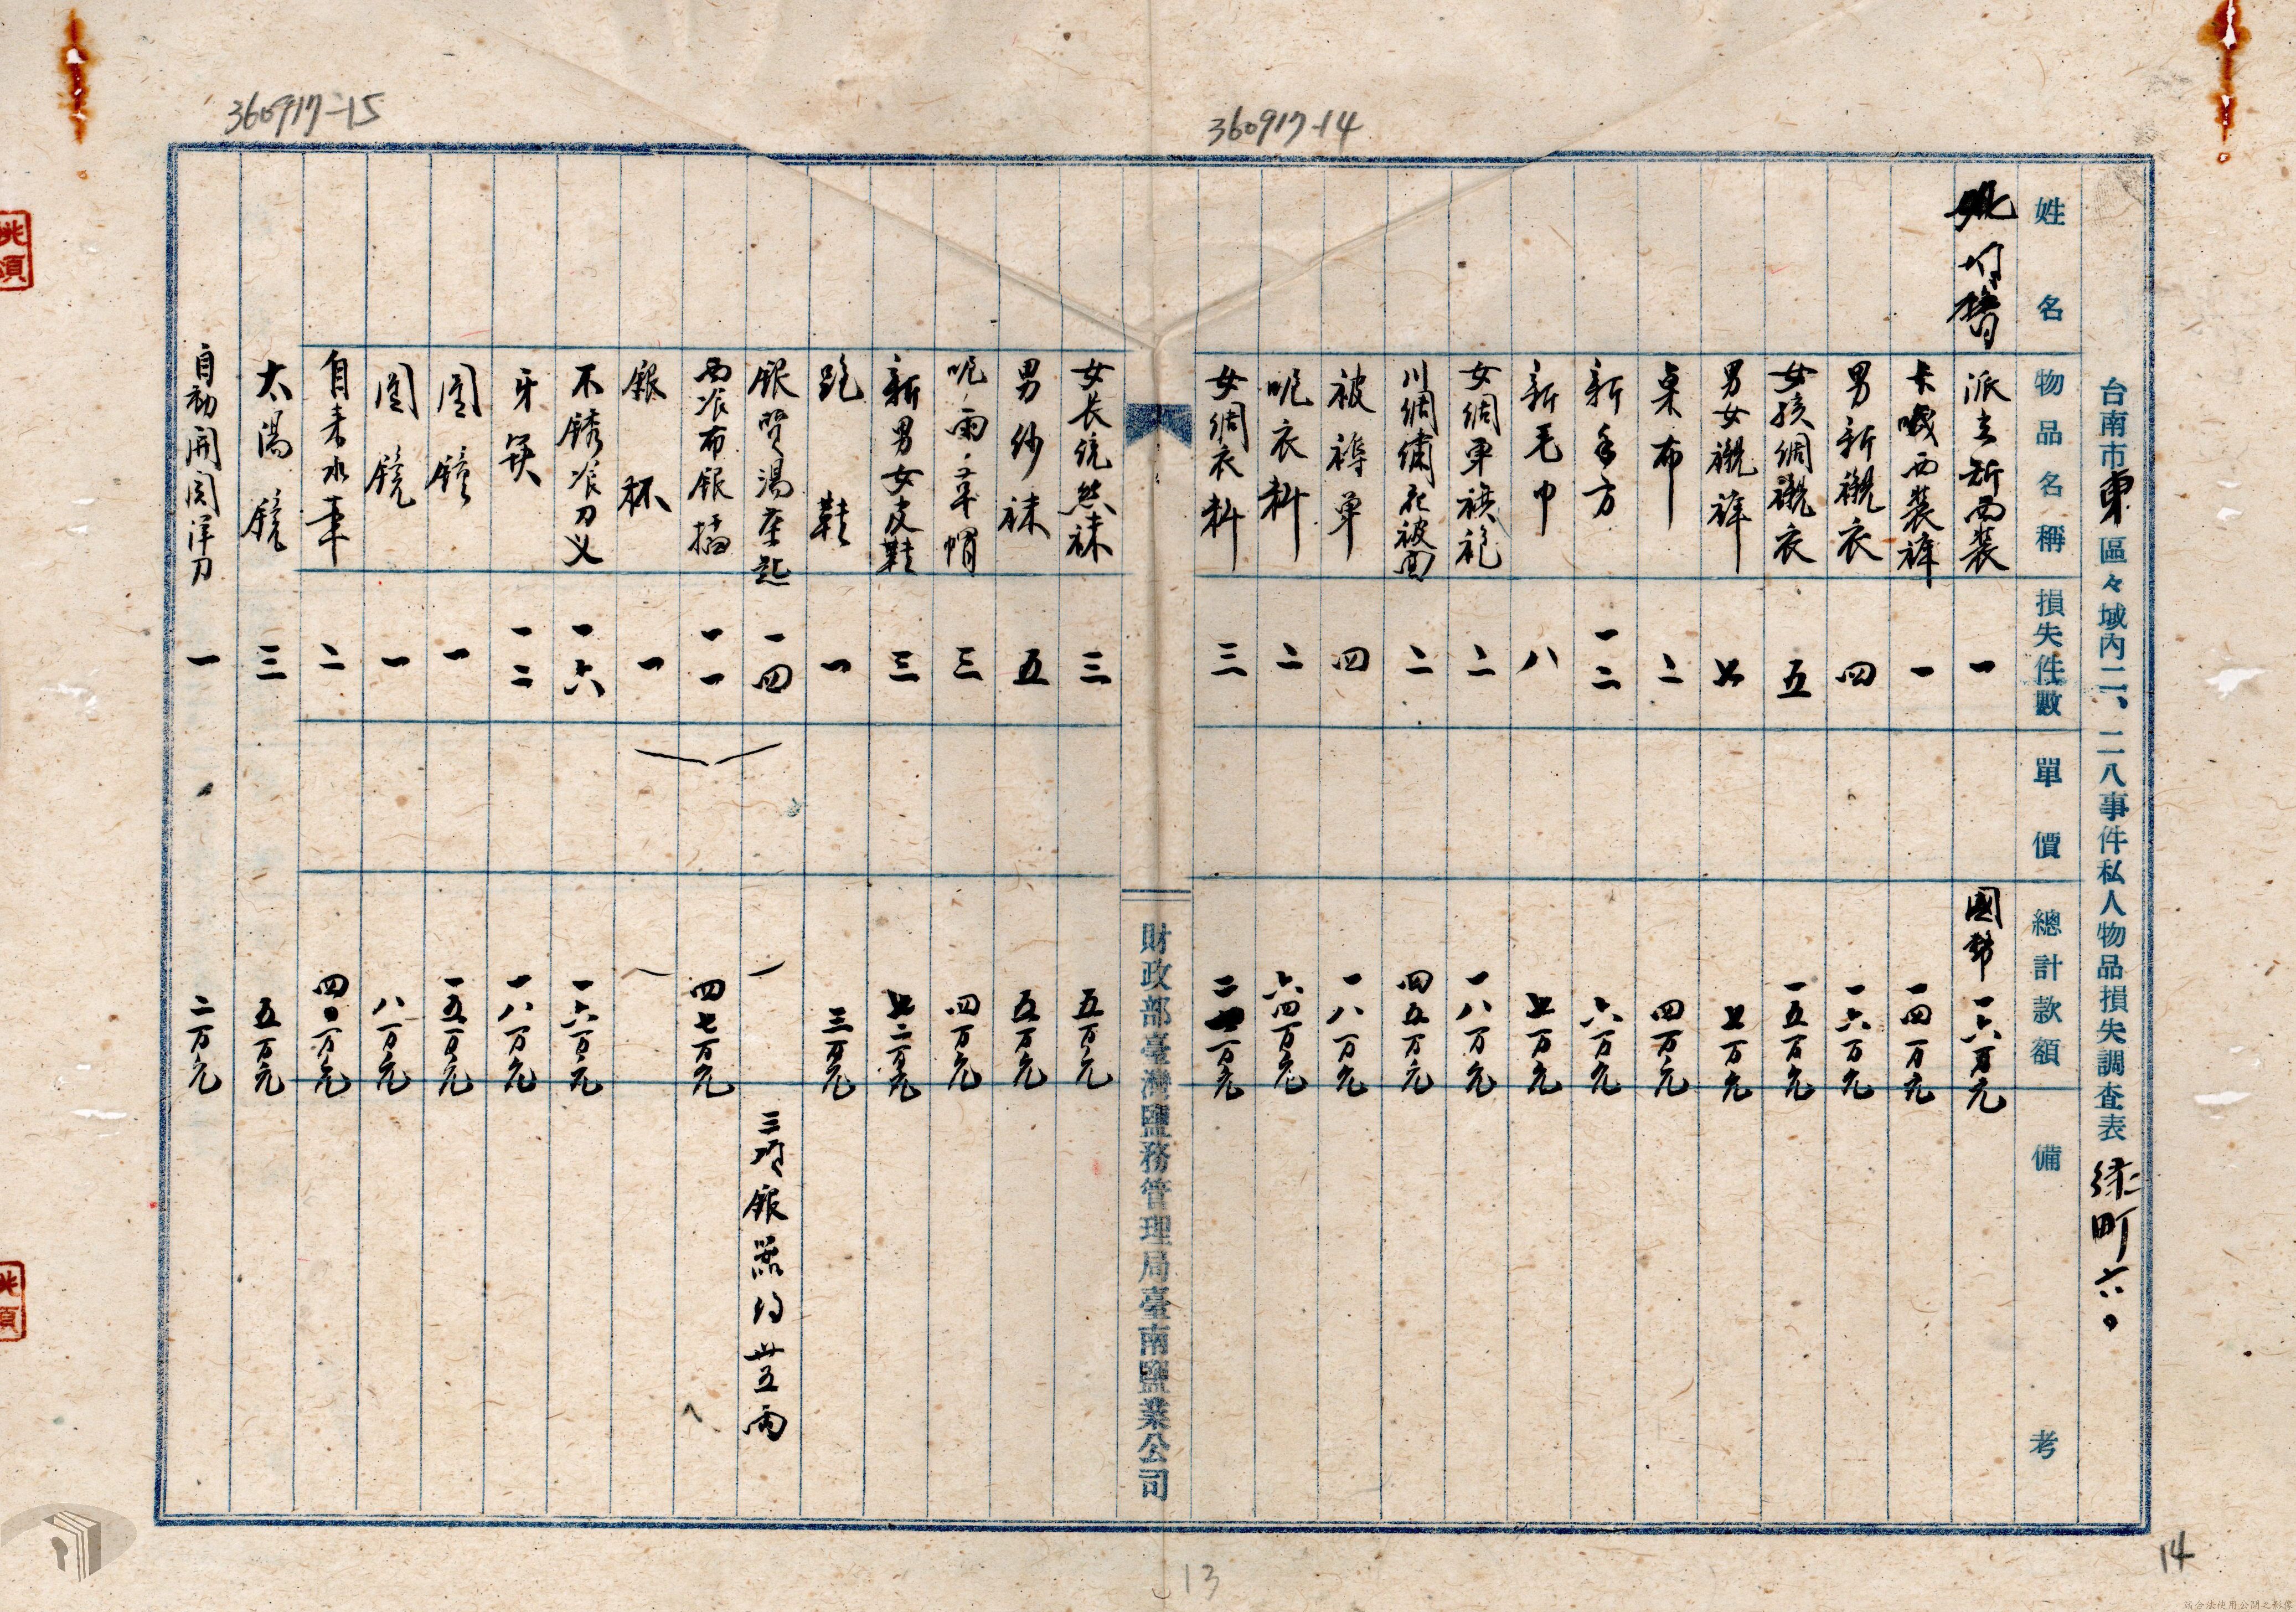 360917-14
360917-15
台南市東區々域內二、二八事件私人物品損失調查表 綠町六〇
姓名 物品名稱 損失件數 單價 總計款額 備考
派立新西裝 一 國幣一六万元
卡嘰西裝褲 一 一四万元
男新襯衣 四 一六万元
女孩綢襯衣 五 一五万元
男女襯褲 七 七万元
桌布 二 四万元
新手方 一二 六万元
新毛巾 八 七万元
女綢軍旗袍 二 一八万元
川綢繡花被面 二 四五万元
被褥單 四 一八万元
呢衣料 二 六四万元
女綢衣料 三 万元
財政部臺灣鹽務管理局臺南鹽業公司
女長統絲袜 三 五万元
男紗袜 五 五万元
呢、雨、草帽 三 四万元
新男女皮鞋 三 七二万元
跑鞋 一 三万元
銀質湯茶匙 一四 三項銀器約卅五兩
西飡布銀插 一一 四七万元
銀杯 一
不銹飡刀义 一六 一六万元
牙筷 一二 一八万元
圓鐘 一 一五万元
圓鏡 一 八万元
自来水筆 二 四〇万元
太陽鏡 三 五万元
自動開関洋刀 一 二万元
13
14
請合法使用公開之影像